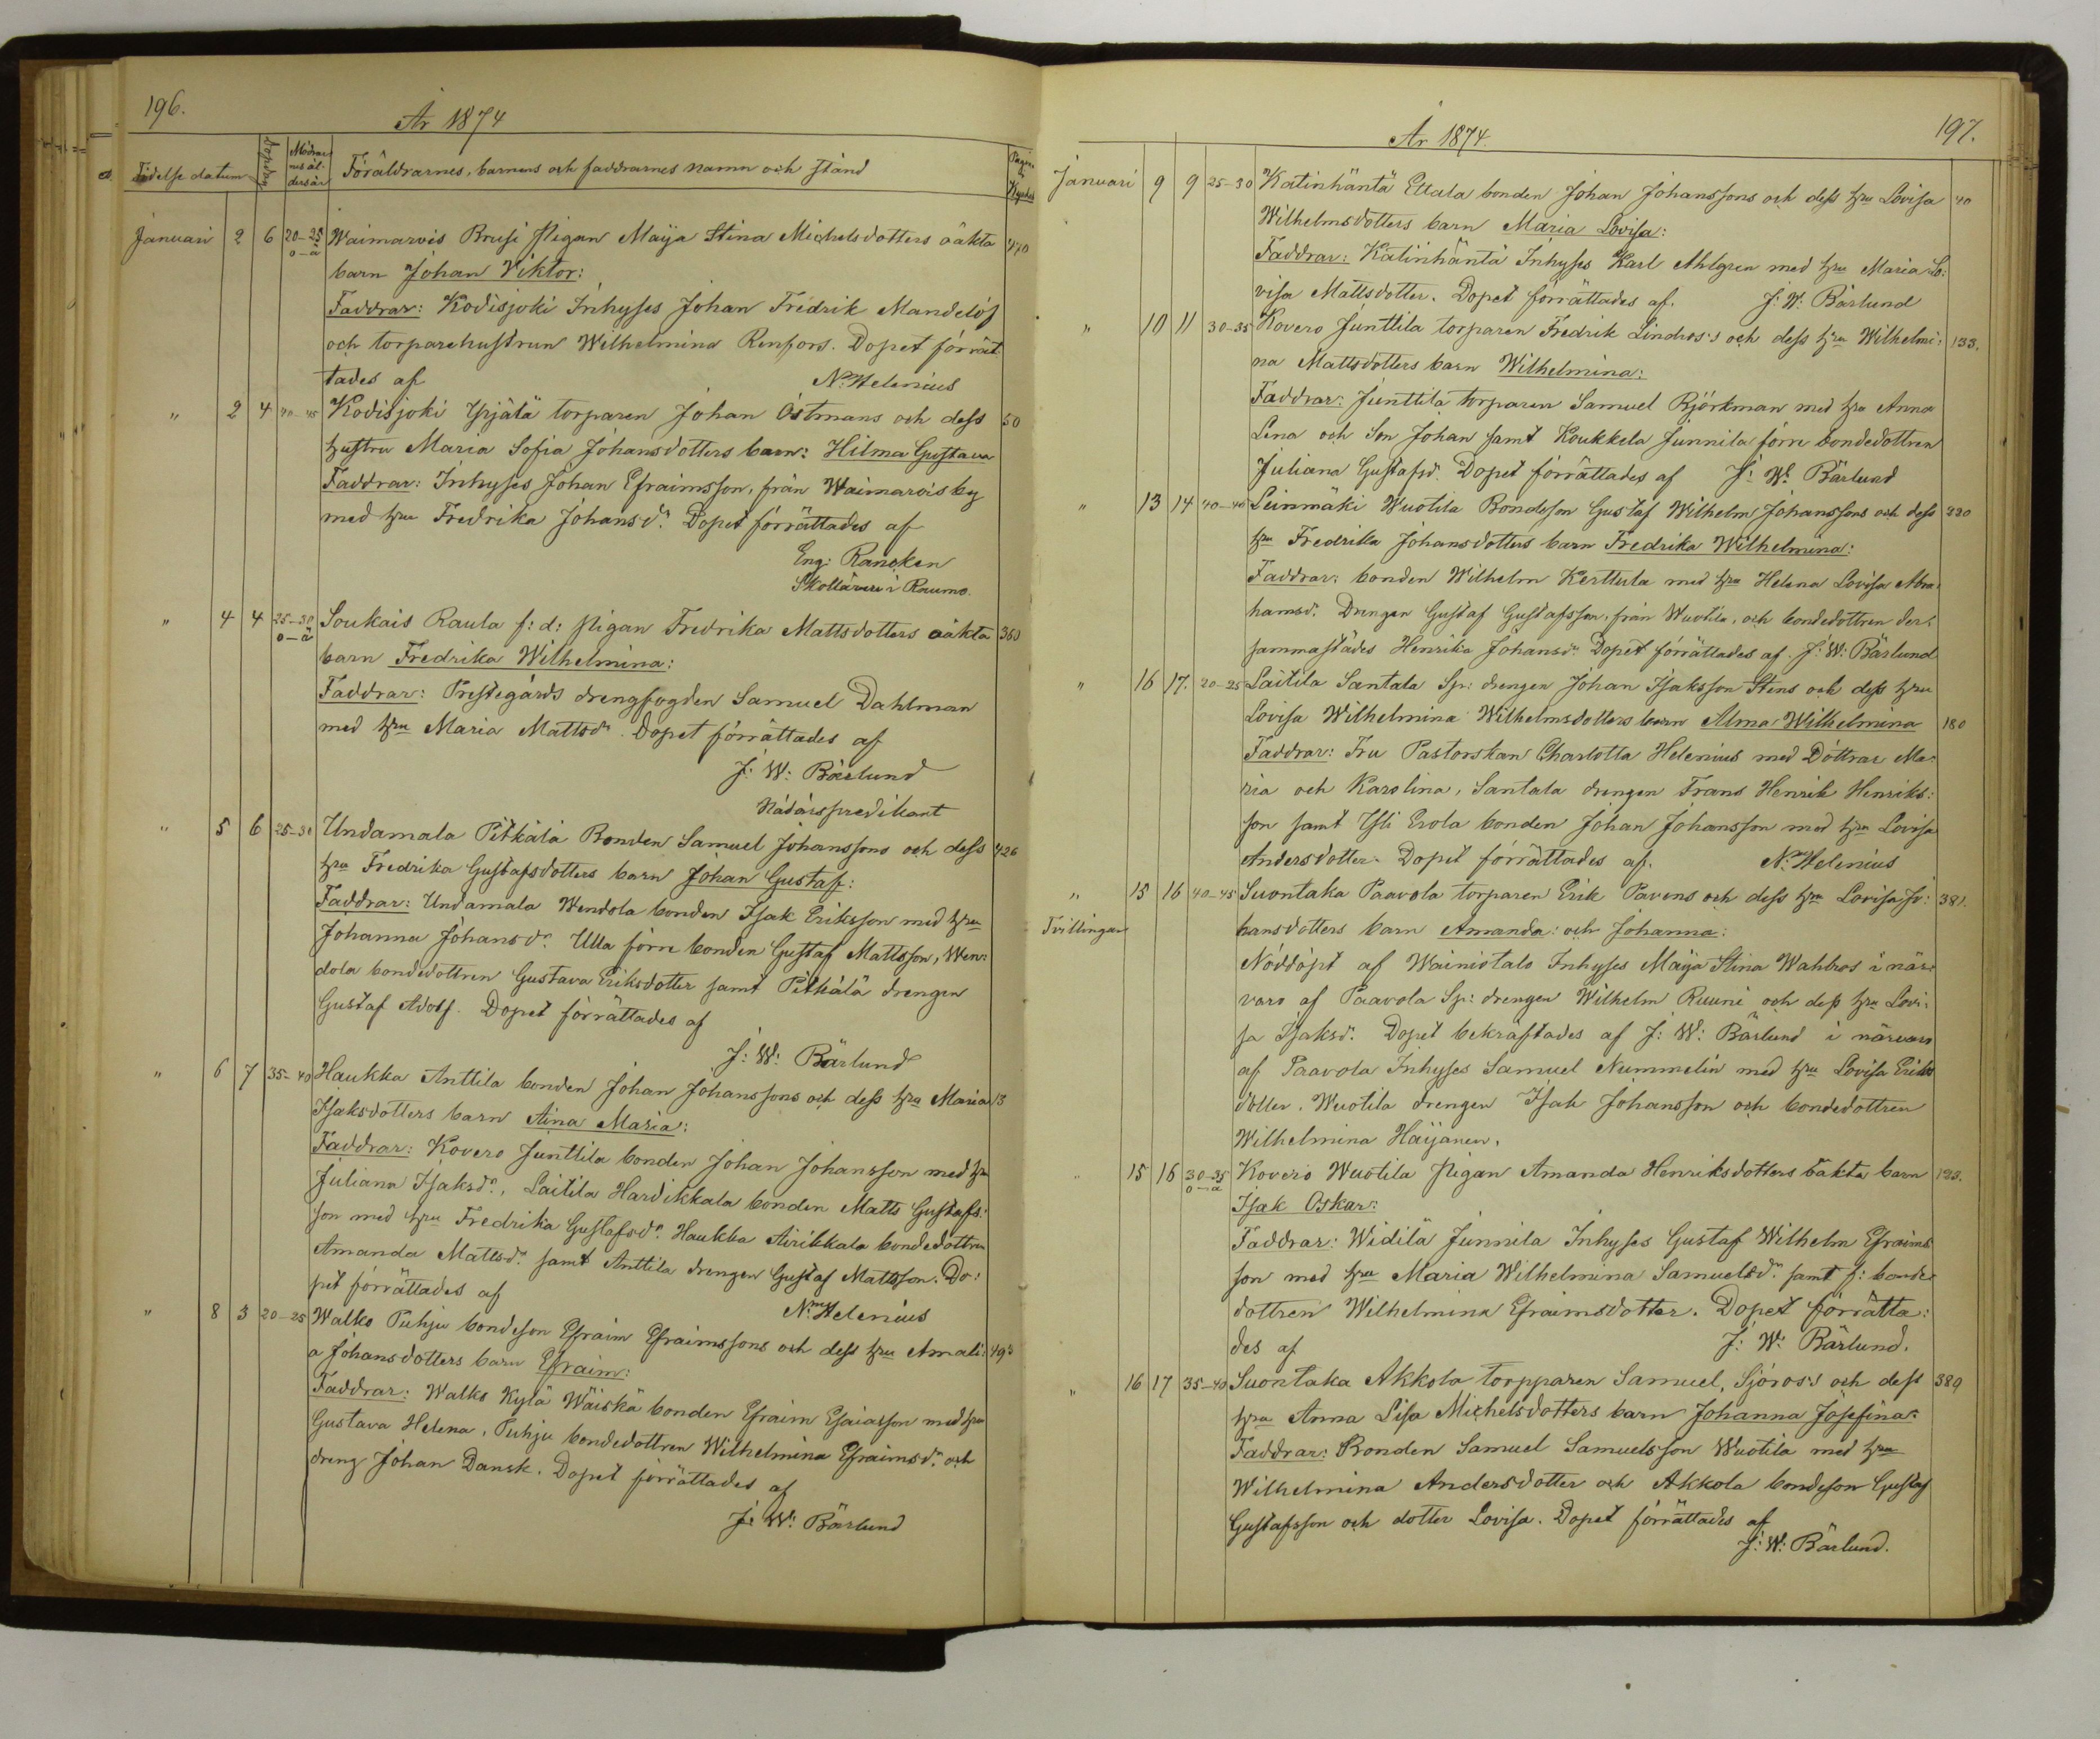 196.
År 1874
Födelse datum
Dopdag
Mödrar
nes ål-
ders år
Föräldrarnes, barnens och faddrarnes namn och stånd
Pagin.
Januari 2 6 20-25 Waimarois Brusi Pigan Maija Stina Michelsdotters oäkta 470
o-ä barn Johan Viktor:
Faddrar: Kodisjoki Inhyses Johan Fredrik Mandelöf
och torparehustrun Wilhelmina Renfors. Dopet förrät
tades af N. Helenius
" 2 4 40-45 Kodisjoki Yrjälä torparen Johan Östmans och dess 50
hustru Maria Sofia Johansdotters barn: Hilma Gustava
Faddrar: Inhyses Johan Efraimsson, från Waimarois by
med hru Fredrika Johansdr. Dopet förrättades af
Eng: Rancken
Skollärare i Raumo.
" 4 4 25-30 Soukais Raula f: d: Pigan Fredrika Mattsdotters oäkta 360
o-ä barn Fredrika Wilhelmina:
Faddrar: Prestegårds drengfogden Samuel Dahlman
med hru Maria Mattsdr. Dopet förrättades af
J: W: Bärlund
Nådårspredikant
" 5 6 25-30 Undamala Pitkälä Bonden Samuel Johanssons och dess 426
hru Fredrika Gustafsdotters barn Johan Gustaf:
Faddrar: Undamala Wendola bonden Isak Eriksson med hru
Johanna Johansdr. Ulla förre bonden Gustaf Mattsson, Wen:
dola bondedottren Gustava Eriksdotter samt Pitkälä drengen
Gustaf Adolf. Dopet förrättades af
J: W: Bärlund
" 6 7 35-40 Haukka Anttila bonden Johan Johanssons och dess hru Maria 13
Isaksdotters barn Aina Maria:
Faddrar: Kovero Junttila bonden Johan Johansson med hru
Juliana Isaksdr., Laitila Hardikkala bonden Matts Gustafs:
son med hru Fredrika Gustafsdr. Haukka Airikkala bondedottren
Amanda Mattsdr. samt Anttila drengen Gustaf Mattsson. Do:
pet förrättades af N. Helenius
" 8 3 20-25 Walko Puhju bondeson Efraim Efraimssons och dess hru Amali: 493
a Johansdotters barn Efraim:
Faddrar: Walko Kylä Wäiskä bonden Efraim Esaiasson med hru
Gustava Helena, Puhju bondedottren Wilhelmina Efraimsdr. och
dreng Johan Dansk. Dopet förrättades af
J: W: Bärlund
197.
År 1874.
Januari 9 9 25-30 Katinhäntä Ettala bonden Johan Johanssons och dess hru Lovisa 40
Wilhelmsdotters barn Maria Lovisa:
Faddrar: Katinhäntä Inhyses Karl Ahlgren med hru Maria Lo:
visa Mattsdotter. Dopet förrättades af. J: W: Bärlund
" 10 11 30-35 Kovero Junttila torparen Fredrik Lindros's och dess hru Wilhelmi: 133.
na Mattsdotters barn Wilhelmina:
Faddrar: Junttila torparen Samuel Björkman med hru Anna
Lena och Son Johan samt Koukkela Junnila förre bondedottren
Juliana Gustafsdr. Dopet förrättades af J: W: Bärlund
" 13 14 40-45 Leinmäki Wuotila Bondeson Gustaf Wilhelm Johanssons och dess 220
hru Fredrika Johansdotters barn Fredrika Wilhelmina:
Faddrar: bonden Wilhelm Kerttula med hru Helena Lovisa Abra:
hamsdr. Drengen Gustaf Gustafsson, från Wuotila, och bondedottren der:
sammastädes Henrika Johansdr. Dopet förrättades af J: W: Bärlund
" 16 17. 20-25 Laitila Santala Sp: drengen Johan Isaksson Stens och dess hru
Lovisa Wilhelmina Wilhelmsdotters barn Alma Wilhelmina 180
Faddrar: Fru Pastorskan Charlotta Helenius med Döttrar Ma:
ria och Karolina, Santala drengen Frans Henrik Henriks:
son samt Ylli Erola bonden Johan Johansson med hru Lovisa
Andersdotter. Dopet förrättades af. N. Helenius
" 15 16 40-45 Suontaka Paavola torparen Erik Pavens och dess hru Lovisa Jo: 381.
Tvillingar hansdotters barn Amanda: och Johanna:
Nöddöpt af Wainiotalo Inhyses Maija Stina Wahlros i när:
varo af Paavola Sp: drengen Wilhelm Ruuni och dess hru Lovi:
sa Isaksdr. Dopet bekräftades af J: W: Bärlund i närvaro
af Paavola Inhyses Samuel Nummelin med hru Lovisa Eriks
dotter. Wuotila drengen Isak Johansson och bondedottren
Wilhelmina Haijanen.
" 15 16 30-35 Kovero Wuotila Pigan Amanda Henriksdotters oäkta barn 123.
o-ä Isak Oskar:
Faddrar: Widilä Junnila Inhyses Gustaf Wilhelm Efraims
son med hru Maria Wilhelmina Samuelsdr. samt f: bonde
dottren Wilhelmina Efraimsdotter. Dopet förrätta:
des af J: W: Bärlund.
" 16 17 35-40 Suontaka Akkola torpparen Samuel Sjöros's och dess 389
hru Anna Lisa Michelsdotters barn Johanna Josefina:
Faddrar: Bonden Samuel Samuelsson Wuotila med hru
Wilhelmina Andersdotter och Akkola bondeson Gustaf
Gustafsson och dotter Lovisa. Dopet förrättades af
J: W: Bärlund.